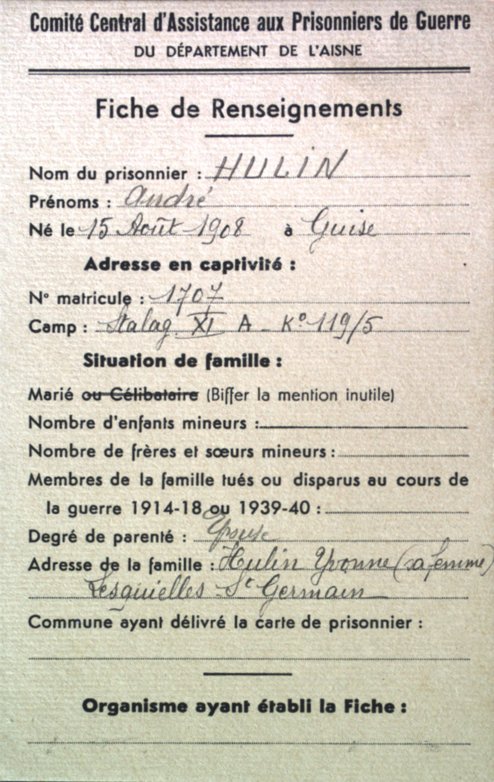 Comité Central d'Assistance aux Prisonniers de Guerre
DU DÉPARTEMENT DE L'AISNE
Fiche de Renseignements
Nom du prisonnier : HULIN
Prénoms : André
Né le 15 Août 1908 à Guise
Adresse en captivité :
N° matricule : 1707
Camp : Stalag XI A - K° 119/5
Situation de famille :
Marié ou Célibataire (Biffer la mention inutile)
Nombre d'enfants mineurs :
Nombre de frères et sœurs mineurs :
Membres de la famille tués ou disparus au cours de
la guerre 1914-18 ou 1939-40 :
Degré de parenté :
Adresse de la famille : Hulin Yvonne (sa femme)
Lesquielles St Germain
Commune ayant délivré la carte de prisonnier :
Organisme ayant établi la Fiche :